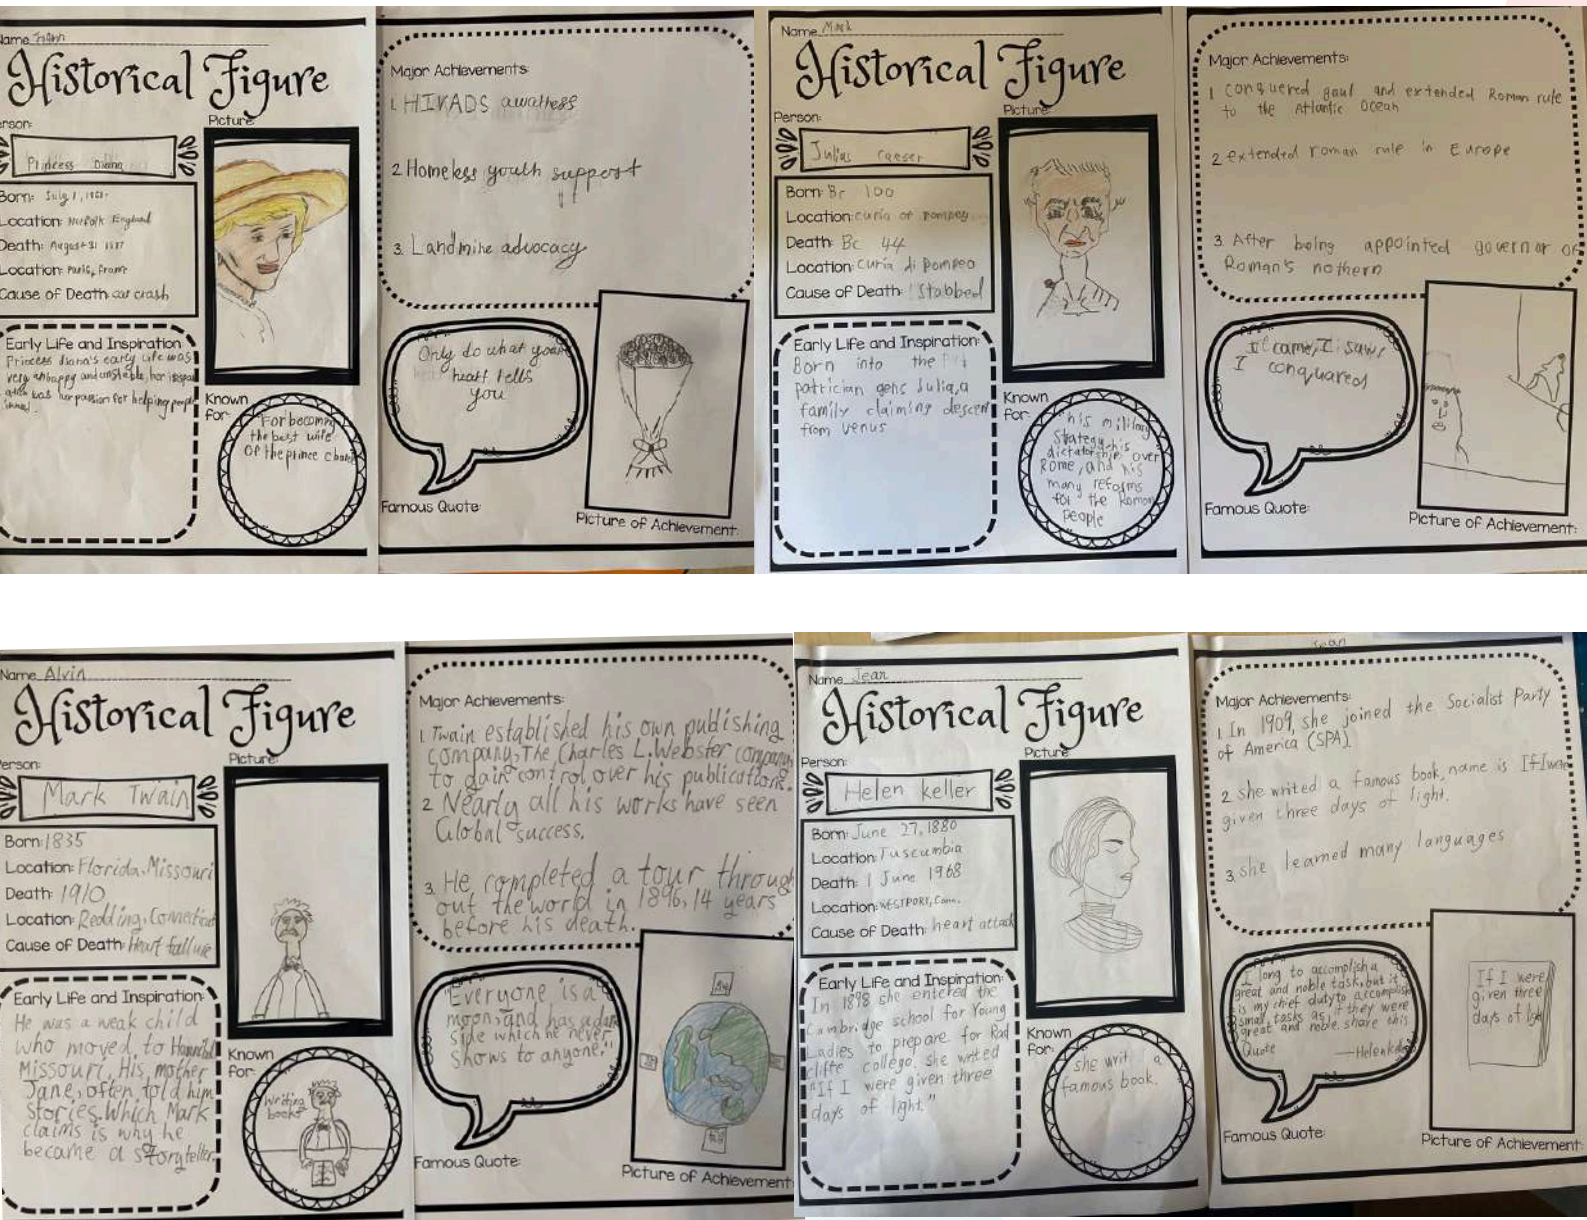 Name
Historical Figure
Person:
Princess Diana
Picture:
Born: July 1, 
Location: Norfolk England
Death: August 31
Location: Paris, France
Cause of Death: car crash
Early Life and Inspiration
Princess diana's early life was
very unhappy and unstable, her
was her passion for helping people
Known
for:
For becoming
the best wife
Of the prince
Major Achievements:
1. HIVADS
2 Homeless youth support
3. Landmine advocacy
Only do what your
heart tells
you
Famous Quote:
Picture of Achievement:
Name Mark
Historical Figure
Person:
Julias caeser
Picture:
Born: Bc 100
Location: curia of pompey
Death: Bc 44
Location: Curia di Pompeo
Cause of Death: Stabbed
Early Life and Inspiration:
Born into the
patrician gens Julia, a
family claiming descen
from venus
Known
for:
his military
strategy, his
dictatorship over
Rome, and his
many reforms
for the Roman
people
Major Achievements:
1 conquered gaul and extended Roman rule
to the Atlantic Ocean
2 extended roman rule in Europe
3. After being appointed governor of
Roman's nothern
I came, I saw,
I conquared
Famous Quote:
Picture of Achievement:
Name Alvin
Historical Figure
Person:
Mark Twain
Picture:
Born: 1835
Location: Florida, Missouri
Death: 1910
Location: Redding, Connecticut
Cause of Death: Heart
Early Life and Inspiration:
He was a weak child
who moved to Hannibal
Missouri. His mother
Jane, often told him
stories. Which Mark
claims is why he
became a storyteller.
Known
for:
Writing
books
Major Achievements:
1. Twain established his own publishing
company, The Charles L. Webster company
to gain control over his publications.
2 Nearly all his works have seen
Global success.
3. He completed a tour through
out the world in 1896, 14 years
before his death.
"Everyone is a
moon, and has a dark
side which he never
shows to anyone."
Famous Quote:
Picture of Achievement:
Name Jean
Historical Figure
Person:
Helen keller
Picture:
Born: June 27, 1880
Location: Tuscumbia
Death: 1 June 1968
Location: WESTPORT, Conn.
Cause of Death: heart attack
Early Life and Inspiration:
In 1898 she entered the
Cambridge school for Young
Ladies to prepare for Rad
cliffe college. she writed
"If I were given three
days of light."
Known
for:
she writ a
famous book.
Jean
Major Achievements:
1. In 1909, she joined the Socialist Party
of America (SPA)
2 she writed a famous book, name is If I were
given three days of light.
3. she learned many languages
I long to accomplish a
great and noble task, but it
is my chief duty to accomplish
small tasks as if they were
great and noble. share this
Quote —Helen
If I were
given three
days of light
Famous Quote:
Picture of Achievement: